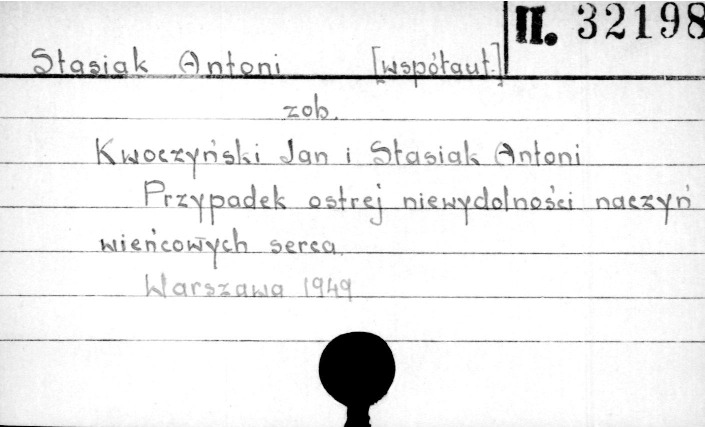 II. 32198
Stasiak Antoni [współaut.]
zob.
Kwoczyński Jan i Stasiak Antoni
Przypadek ostrej niewydolności naczyń
wieńcowych serca
Warszawa 1949